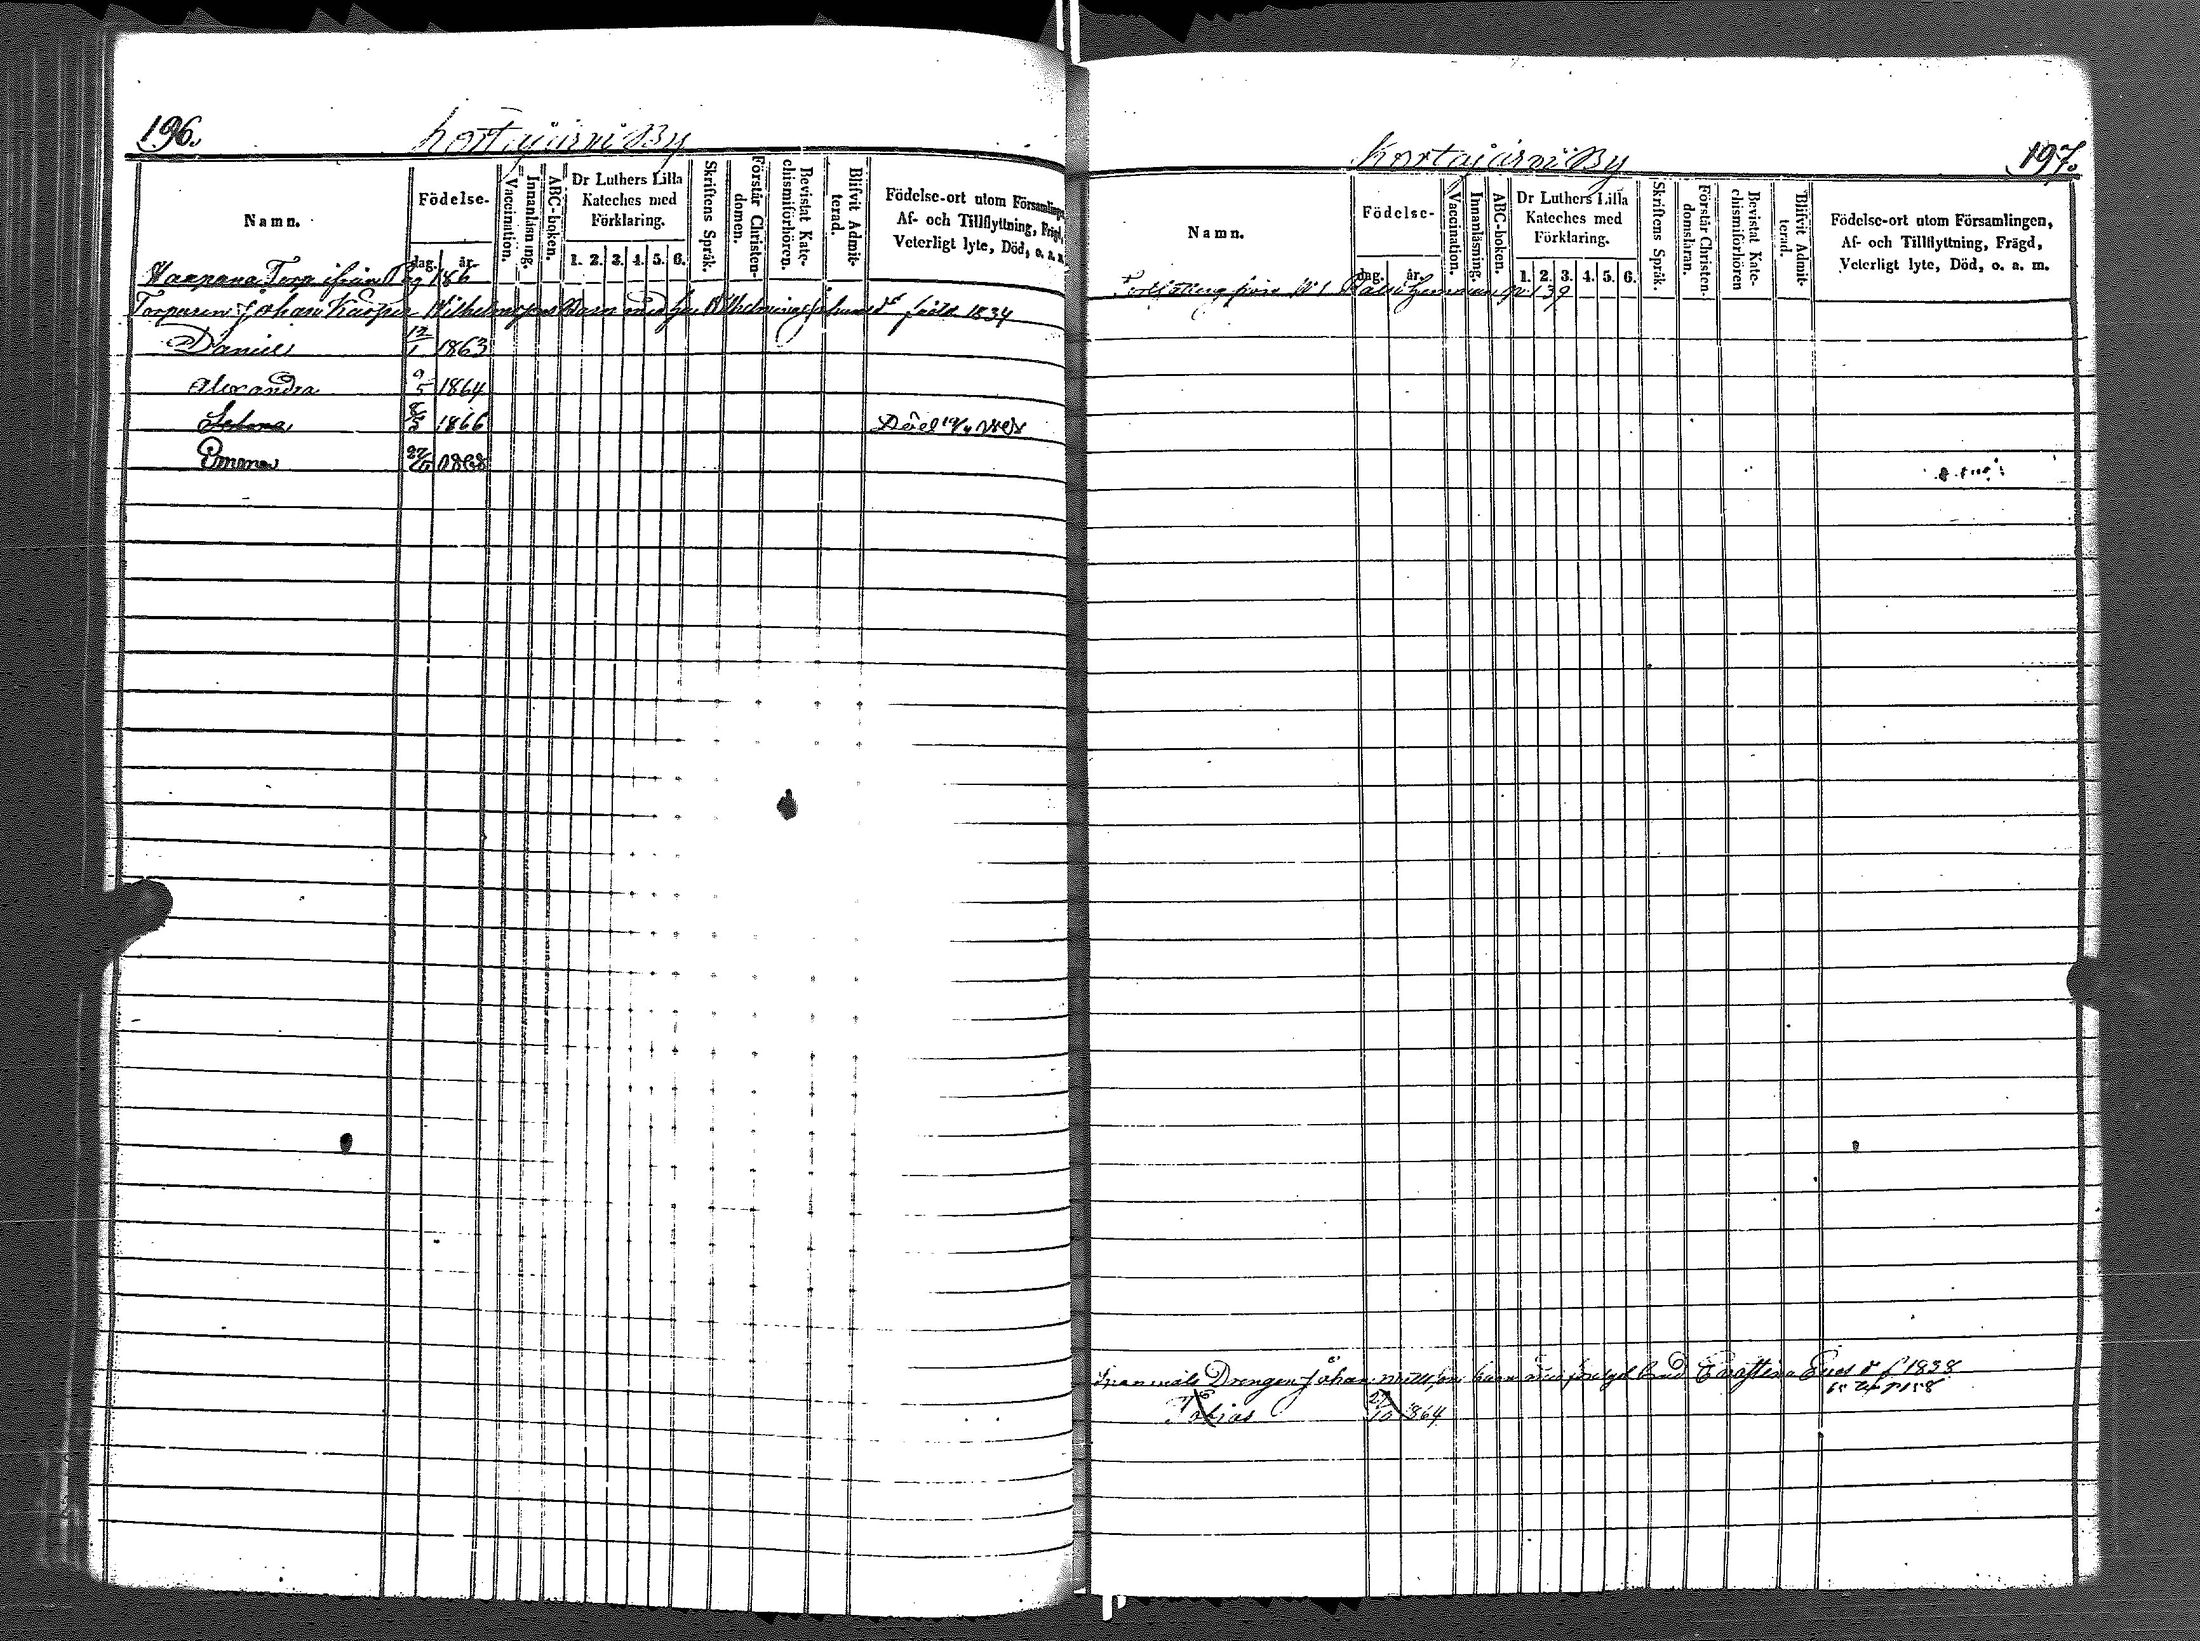 196.
Kortajärvi By
Namn.
Födelse-
dag. år.
Vaccination.
Innanläsning.
ABC-boken.
Dr Luthers Lilla
Kateches med
Förklaring.
1. 2. 3. 4. 5. 6.
Skriftens Språk.
Förstår Christen-
domen.
Bevistat Kate-
chismiförhören.
Blifvit Admit-
terad.
Födelse-ort utom Församlingen,
Af- och Tillflyttning, Frägd,
Veterligt lyte, Död, o. a. m.
Haapana Torp ifrån Pag 186
Torparen Johan Kasper Wilhelmssons Barn med hu Wilhelmina Johansdr född 1834
Daniel 12/1 1863
Alexandra 9/5 1864
Selma 8/3 1866 Död 1868
Emma 27/10 1868
Kortajärvi By
197.
Namn.
Födelse-
dag. år.
Vaccination.
Innanläsning.
ABC-boken.
Dr Luthers Lilla
Kateches med
Förklaring.
1. 2. 3. 4. 5. 6.
Skriftens Språk.
Förstår Christen-
domsläran.
Bevistat Kate-
chismiförhören
Blifvit Admit-
terad.
Födelse-ort utom Församlingen,
Af- och Tillflyttning, Frägd,
Veterligt lyte, Död, o. a. m.
Fortsättning från № 1 p. 139
Drengen Johan barn med Ernestina Ewasdr f 1838
Tobias 27/10 1864